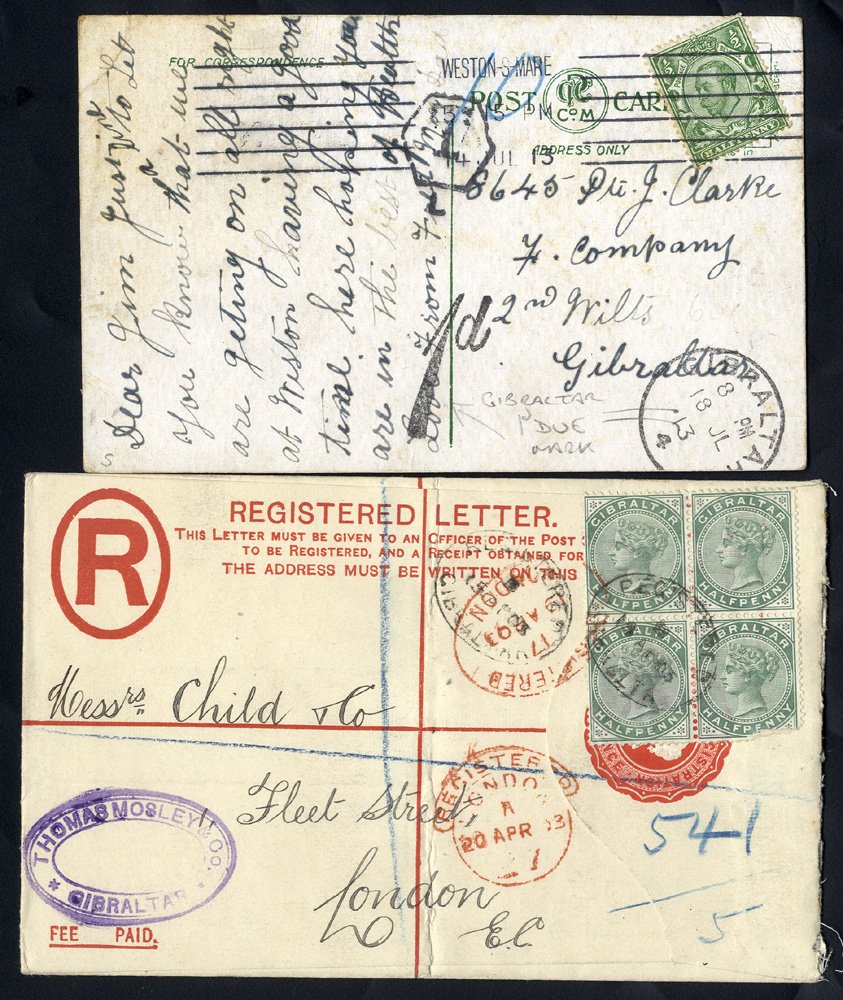 FOR CORRESPONDENCE
WESTON-S-MARE
5 15 PM
14 JUL 13
POST CARD
ADDRESS ONLY
HALFPENNY
Dear Jim Just
to let
you know that we
are geting on all right
at Weston having a good
time here hoping you
are in the best of Health
Love From F
10
T
1d
8645 Pte. J. Clarke
F. Company
2nd Wilts
Gibraltar
GIBRALTAR
1d DUE
MARK
GIBRALTAR
8 PM
18 JL
13
4
5
R
REGISTERED LETTER.
THIS LETTER MUST BE GIVEN TO AN OFFICER OF THE POST
TO BE REGISTERED, AND A RECEIPT OBTAINED FOR
THE ADDRESS MUST BE WRITTEN ON THIS
GIBRALTAR
HALFPENNY
GIBRALTAR
HALFPENNY
GIBRALTAR
HALFPENNY
GIBRALTAR
HALFPENNY
REGISTERED
GIBRALTAR
REGISTERED LONDON
17 AP 93
Messrs Child & Co
1, Fleet Street
London
E.C.
REGISTERED
LONDON
20 APR 93
27
THOMAS MOSLEY & CO.
GIBRALTAR
541
5
FEE PAID.